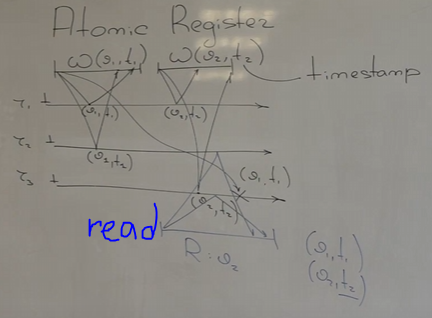 Atomic Register
W(v₁,t₁) W(v₂,t₂)
timestamp
r₁ ⊥
(v₁,t₁) (v₂,t₂)
r₂ ⊥
(v₂,t₂)
(v₁,t₁)
r₃ ⊥
(v₂,t₂)
read
R:v₂
(v₁,t₁)
(v₂,t₂)